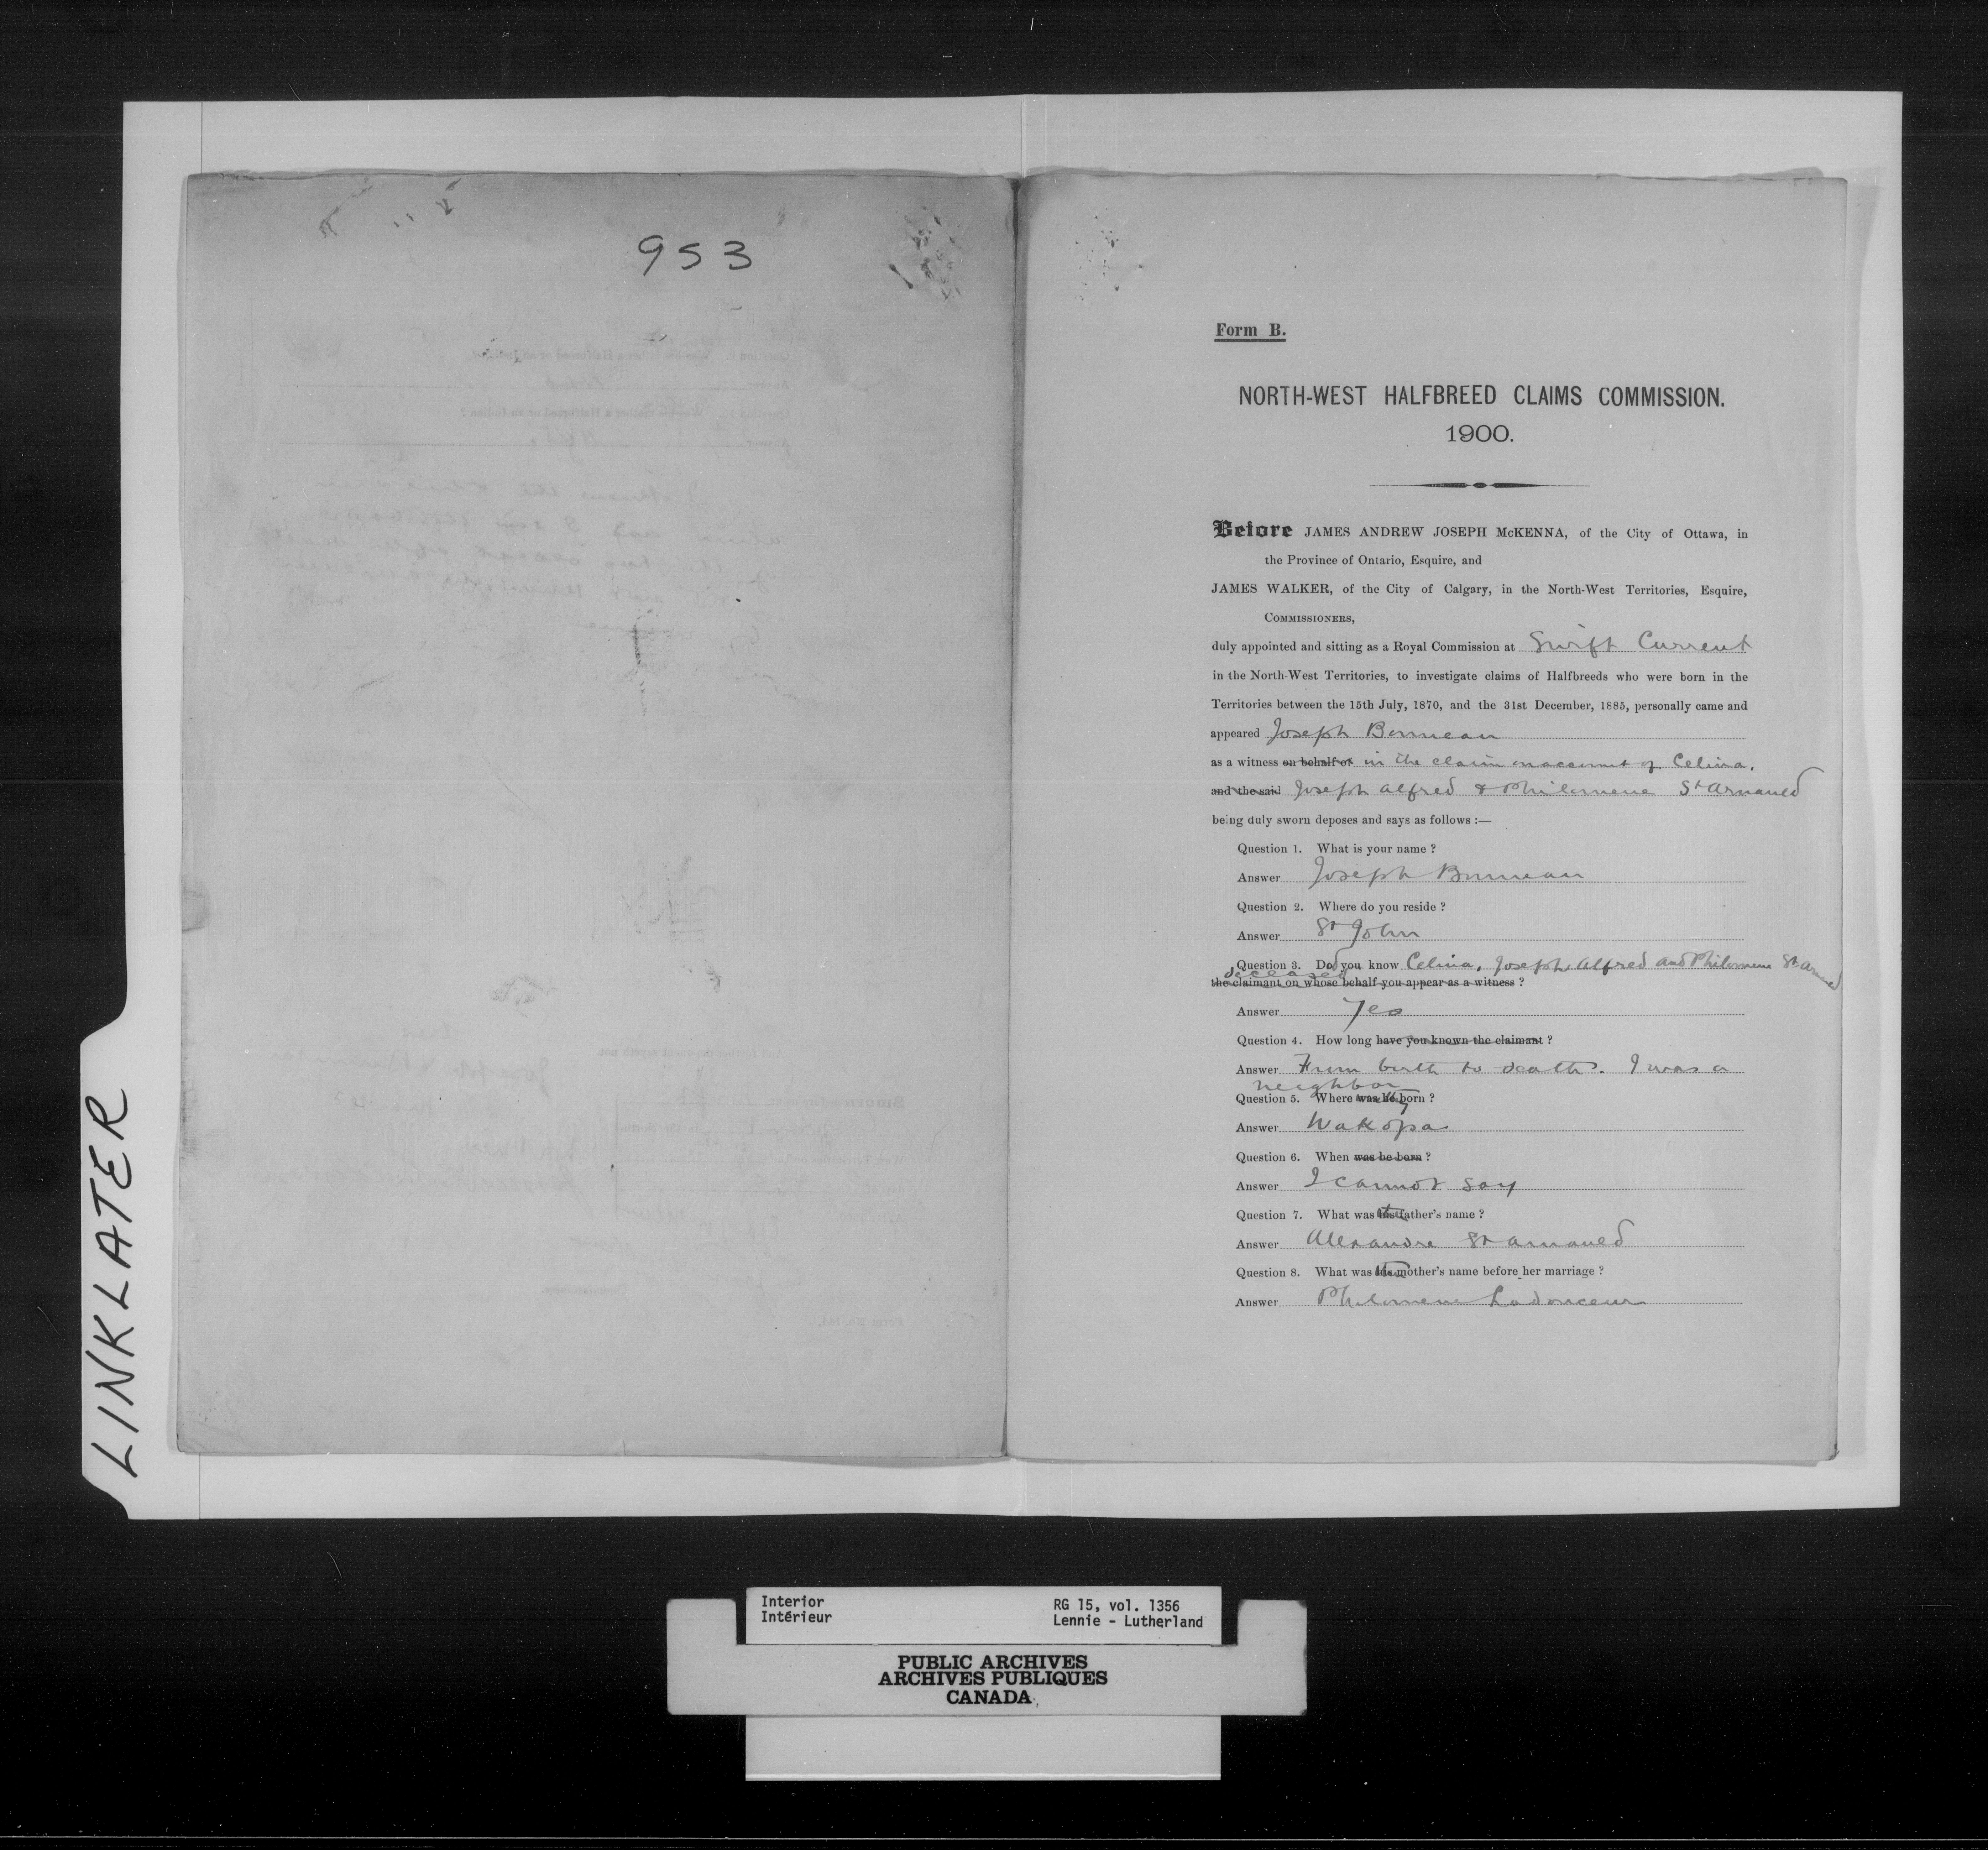 953
LINKLATER
Form B.
NORTH-WEST HALFBREED CLAIMS COMMISSION.
1900.
Before JAMES ANDREW JOSEPH McKENNA, of the City of Ottawa, in
the Province of Ontario, Esquire, and
JAMES WALKER, of the City of Calgary, in the North-West Territories, Esquire,
COMMISSIONERS,
duly appointed and sitting as a Royal Commission at Swift Current
in the North-West Territories, to investigate claims of Halfbreeds who were born in the
Territories between the 15th July, 1870, and the 31st December, 1885, personally came and
appeared Joseph Bonneau
as a witness on behalf of in the claim on account of Celina,
and the said Joseph Alfred & Philomene St Arnaued
being duly sworn deposes and says as follows :—
Question 1. What is your name ?
Answer Joseph Bonneau
Question 2. Where do you reside ?
Answer St John
Question 3. Did you know Celina, Joseph Alfred and Philomene St Arnaued
deceased
the claimant on whose behalf you appear as a witness ?
Answer Yes
Question 4. How long have you known the claimant ?
Answer From birth to death. I was a
neighbor
Question 5. Where was he born ?
Answer Wakopa
Question 6. When was he born ?
Answer I cannot say
Question 7. What was father's name ?
Answer Allexandre St Arnaued
Question 8. What was mother's name before her marriage ?
Answer Philomene Ladouceur
Interior
Intérieur
RG 15, vol. 1356
Lennie - Lutherland
PUBLIC ARCHIVES
ARCHIVES PUBLIQUES
CANADA